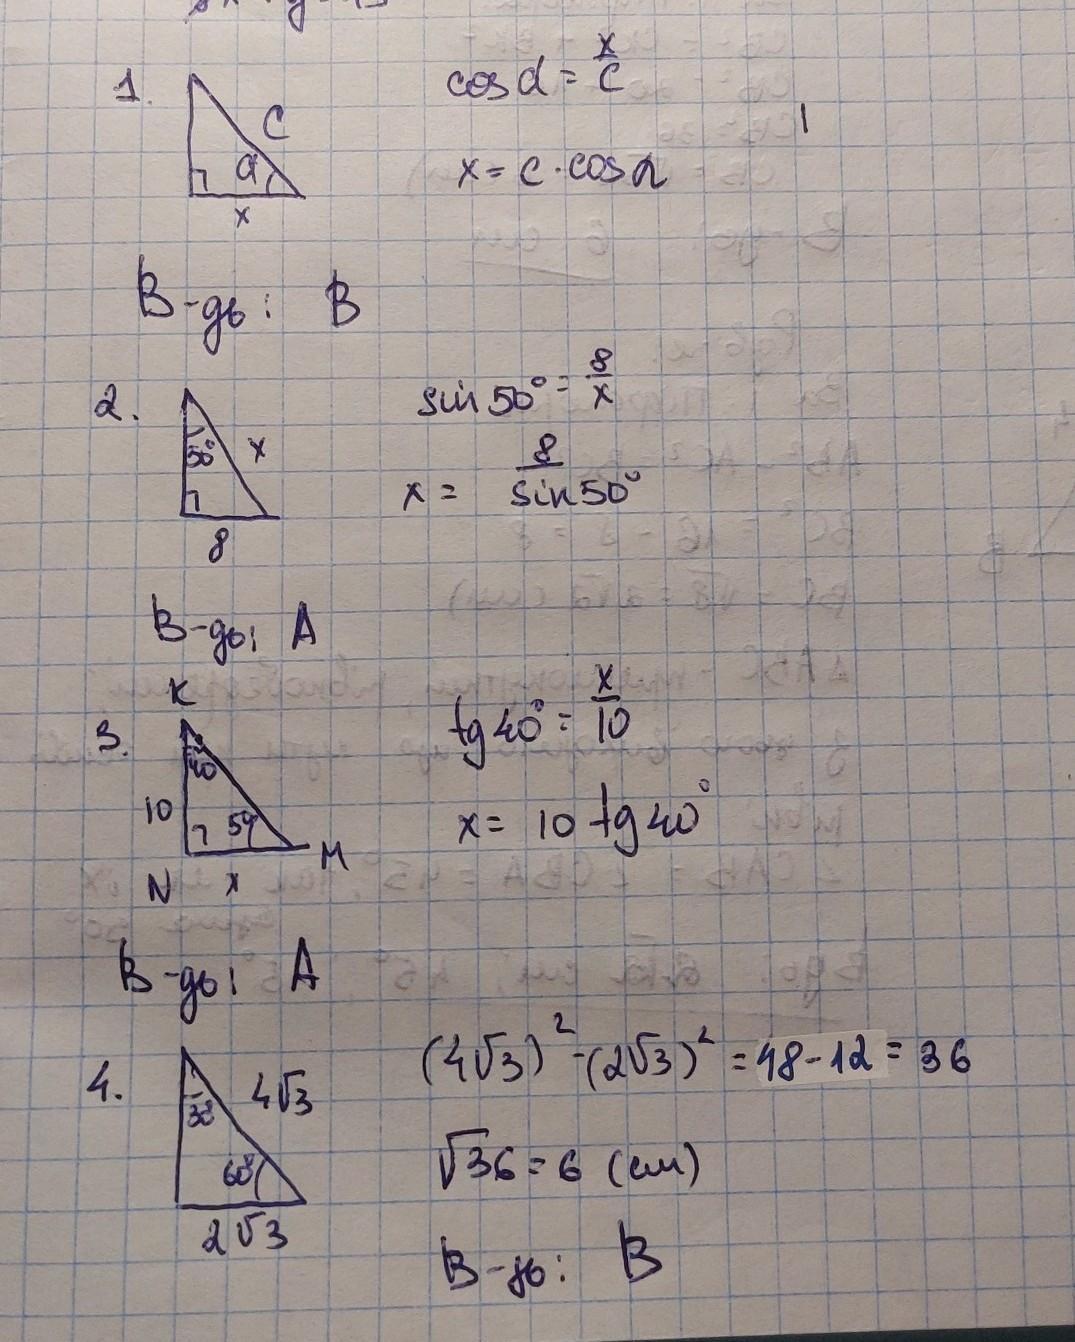 1.
C
α
x
cos α = x/c
x = c · cos α
В-дь: В
2.
50°
x
8
sin 50° = 8/x
x = 8/sin 50°
В-дь: А
3.
K
40°
10
M
N
x
tg 40° = x/10
x = 10 tg 40°
В-дь: А
4.
30°
4√3
60°
2√3
(4√3)² - (2√3)² = 48 - 12 = 36
√36 = 6 (см)
В-дь: В